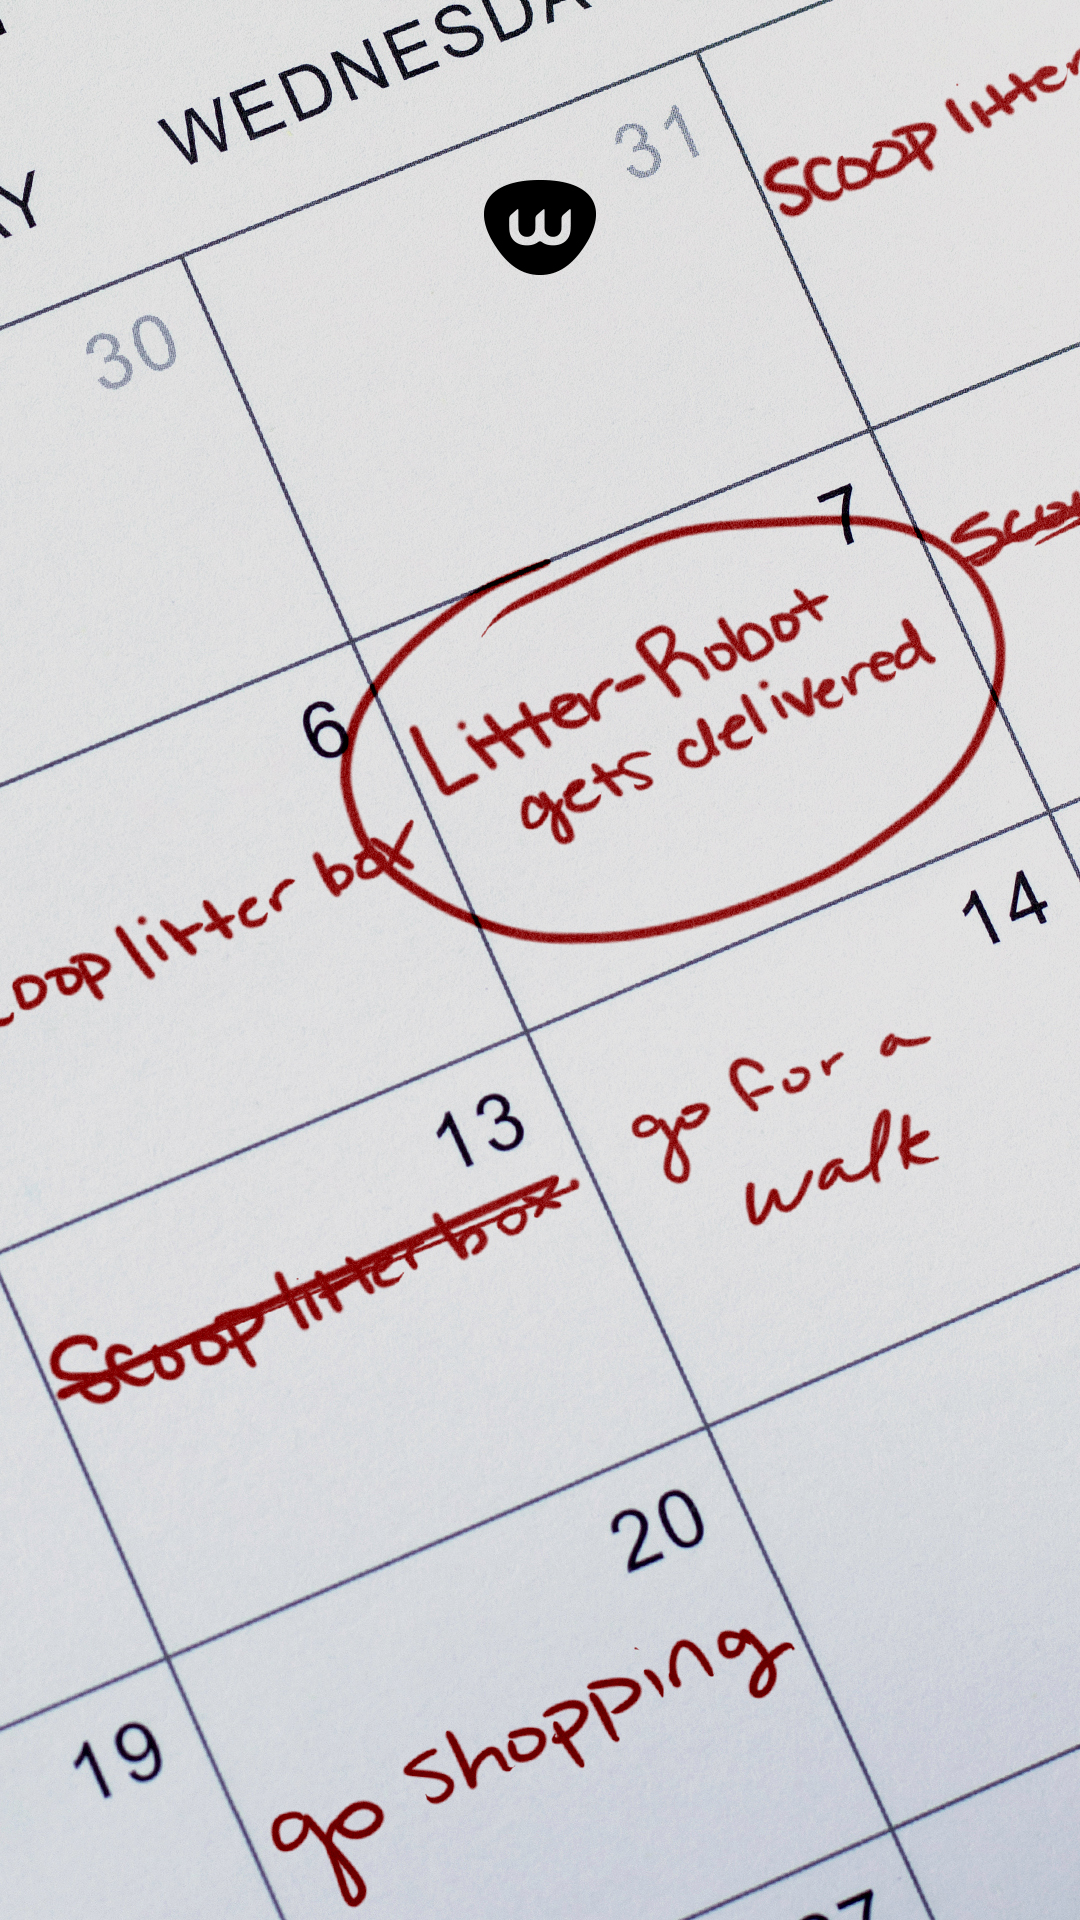 WEDNESDA
AY
31
30
scoop litter
7
6
Litter-Robot
gets delivered
scoop litter box
14
13
go for a
walk
Scoop litter box
20
19
go shopping
27